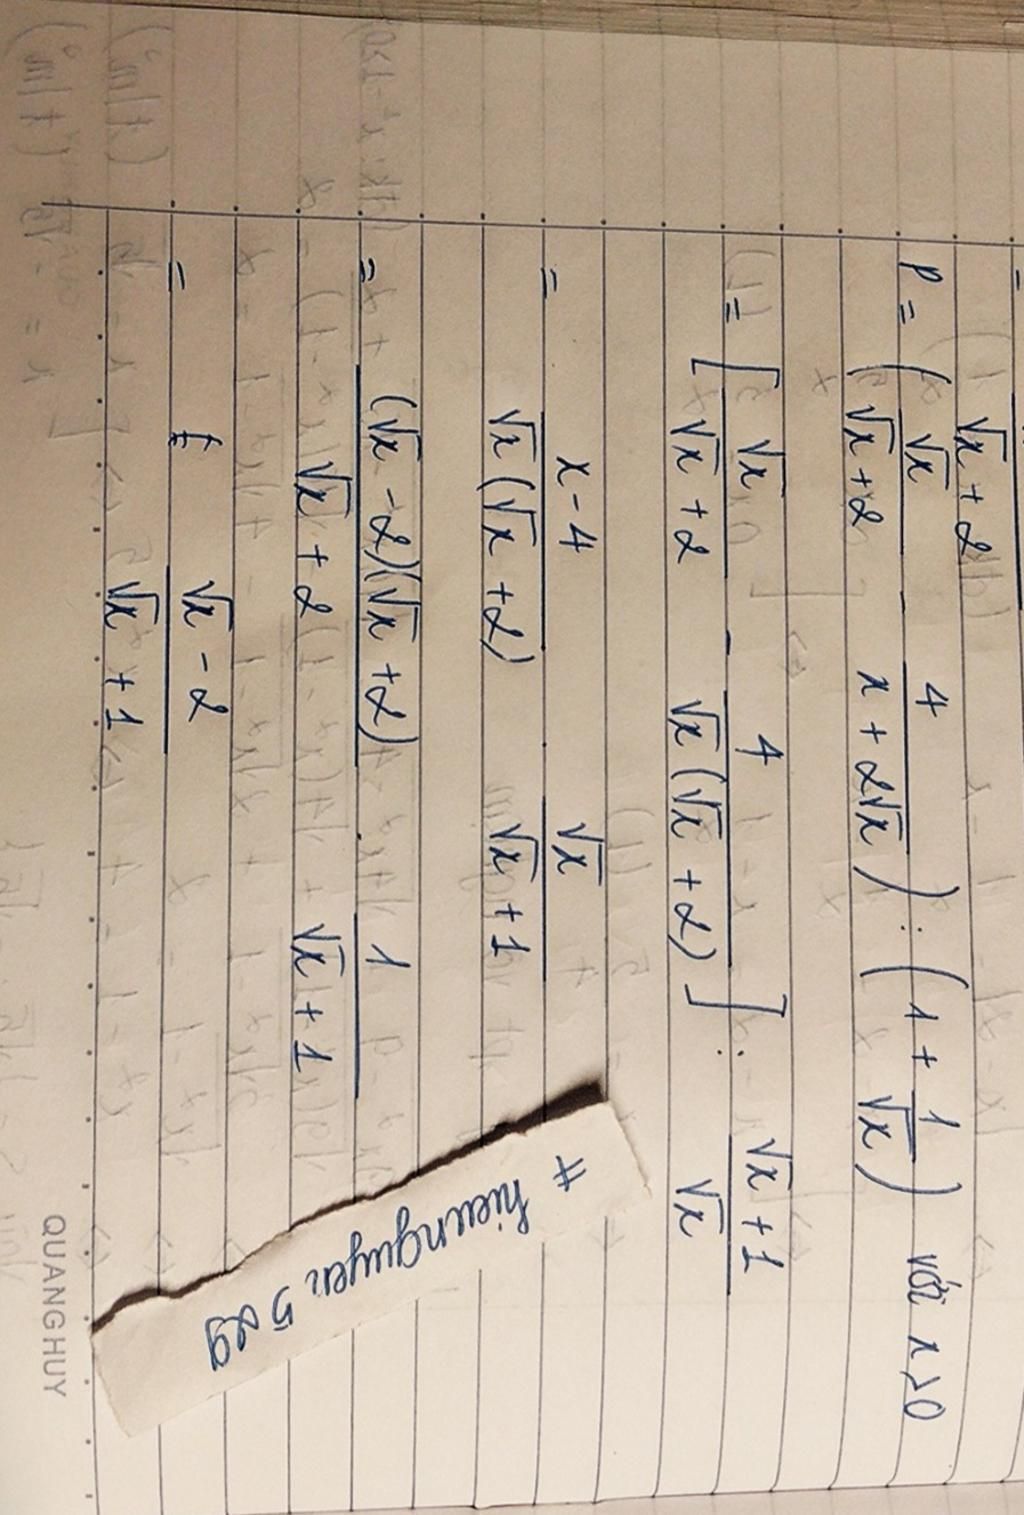 √x + 2
P = ( √x / (√x + 2) - 4 / (x + 2√x) ) : ( 1 + 1/√x ) với x > 0
= [ √x / (√x + 2) - 4 / (√x (√x + 2)) ] : (√x + 1) / √x
= (x - 4) / (√x (√x + 2)) . √x / (√x + 1)
= (√x - 2)(√x + 2) / (√x + 2) . 1 / (√x + 1)
= (√x - 2) / (√x + 1)
# hieunguyen 5 
QUANGHUY